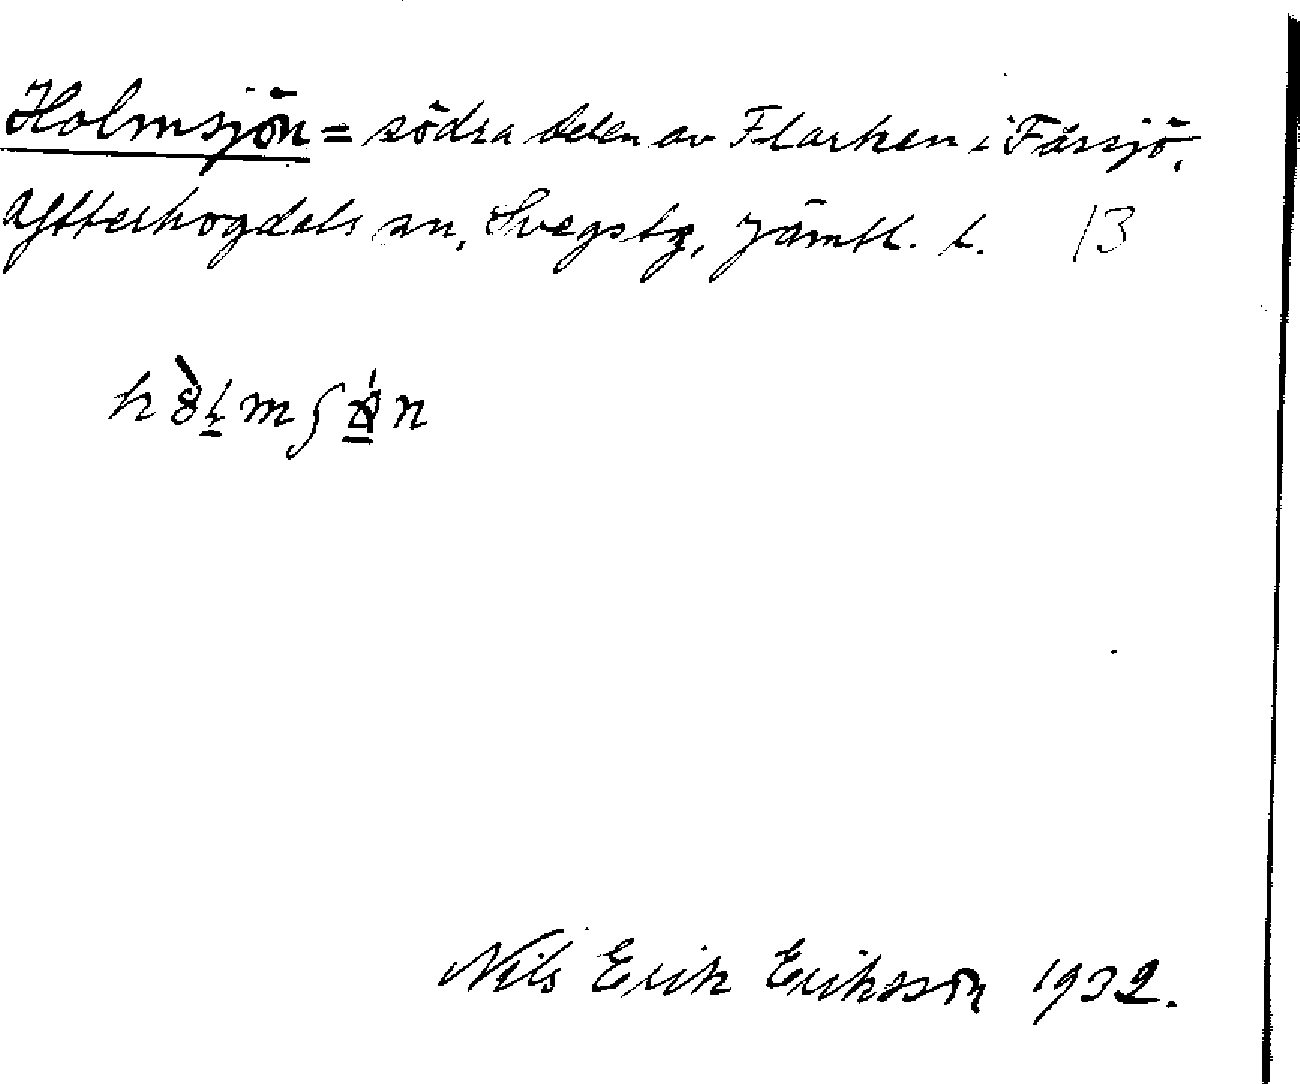 Holmsjön = södra delen av Flarken i Fårsjö,
Ytterhogdals sn, Svegs tg, Jämtl. l. 13
Nils Erik Eriksson 1932.